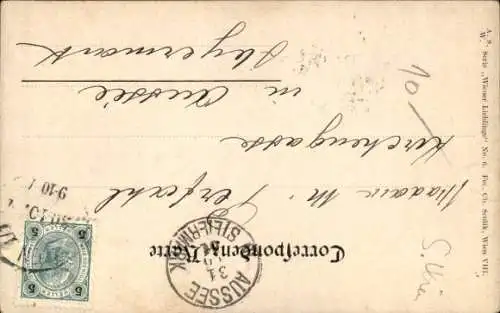 Correspondenz-Karte
Madame M.
Kirchengasse
in Aussee
Steyermark
AUSSEE
STEIERMARK
31
5 5
5 5
9-10
10
Serie „Wiener Lieblinge" No. 6. Fec. Ch. Scolik, Wien VIII.